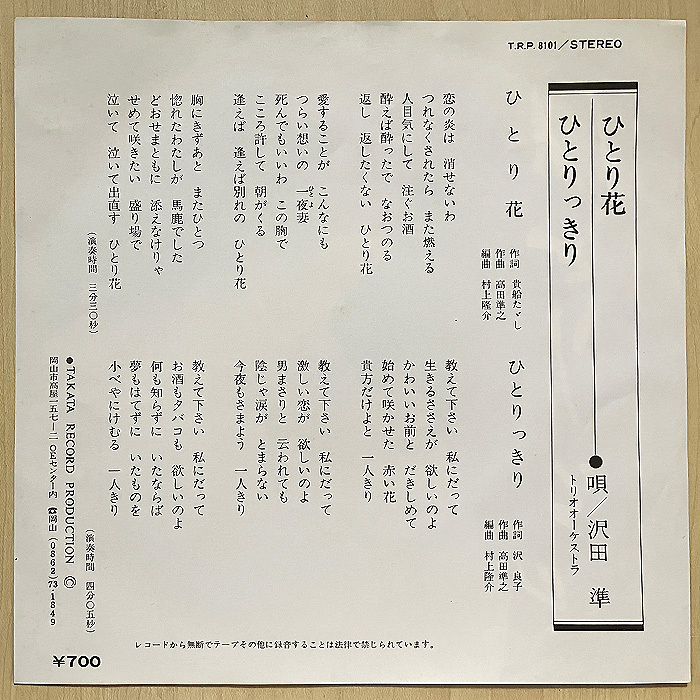 T.R.P. 8101/STEREO
ひとり花
ひとりっきり
●唄/沢田 準
トリオオーケストラ
ひとり花
作詞 貴船たゞし
作曲 高田準之
編曲 村上隆介
恋の炎は 消せないわ
つれなくされたら また燃える
人目気にして 注ぐお酒
酔えば酔ったで なおつのる
返し 返したくない ひとり花
愛することが こんなにも
つらい想いの 一夜妻
ひとよ
死んでもいいわ この胸で
こころ許して 朝がくる
逢えば 逢えば別れの ひとり花
胸にきずあと またひとつ
惚れたわたしが 馬鹿でした
どおせまともに 添えなけりゃ
せめて咲きたい 盛り場で
泣いて 泣いて出直す ひとり花
(演奏時間 三分三〇秒)
ひとりっきり
作詞 沢 良子
作曲 高田準之
編曲 村上隆介
教えて下さい 私にだって
生きるささえが 欲しいのよ
かわいいお前と だきしめて
始めて咲かせた 赤い花
貴方だけよと 一人きり
教えて下さい 私にだって
激しい恋が 欲しいのよ
男まさりと 云われても
陰じゃ涙が とまらない
今夜もさまよう 一人きり
教えて下さい 私にだって
お酒もタバコも 欲しいのよ
何も知らずに いたならば
夢もはてずに いたものを
小べやにけむる 一人きり
(演奏時間 四分〇五秒)
●TAKATA RECORD PRODUCTION ©
岡山市高屋一五七-二 OEセンター内 ☎岡山(0862)73-1849
レコードから無断でテープその他に録音することは法律で禁じられています。
¥700